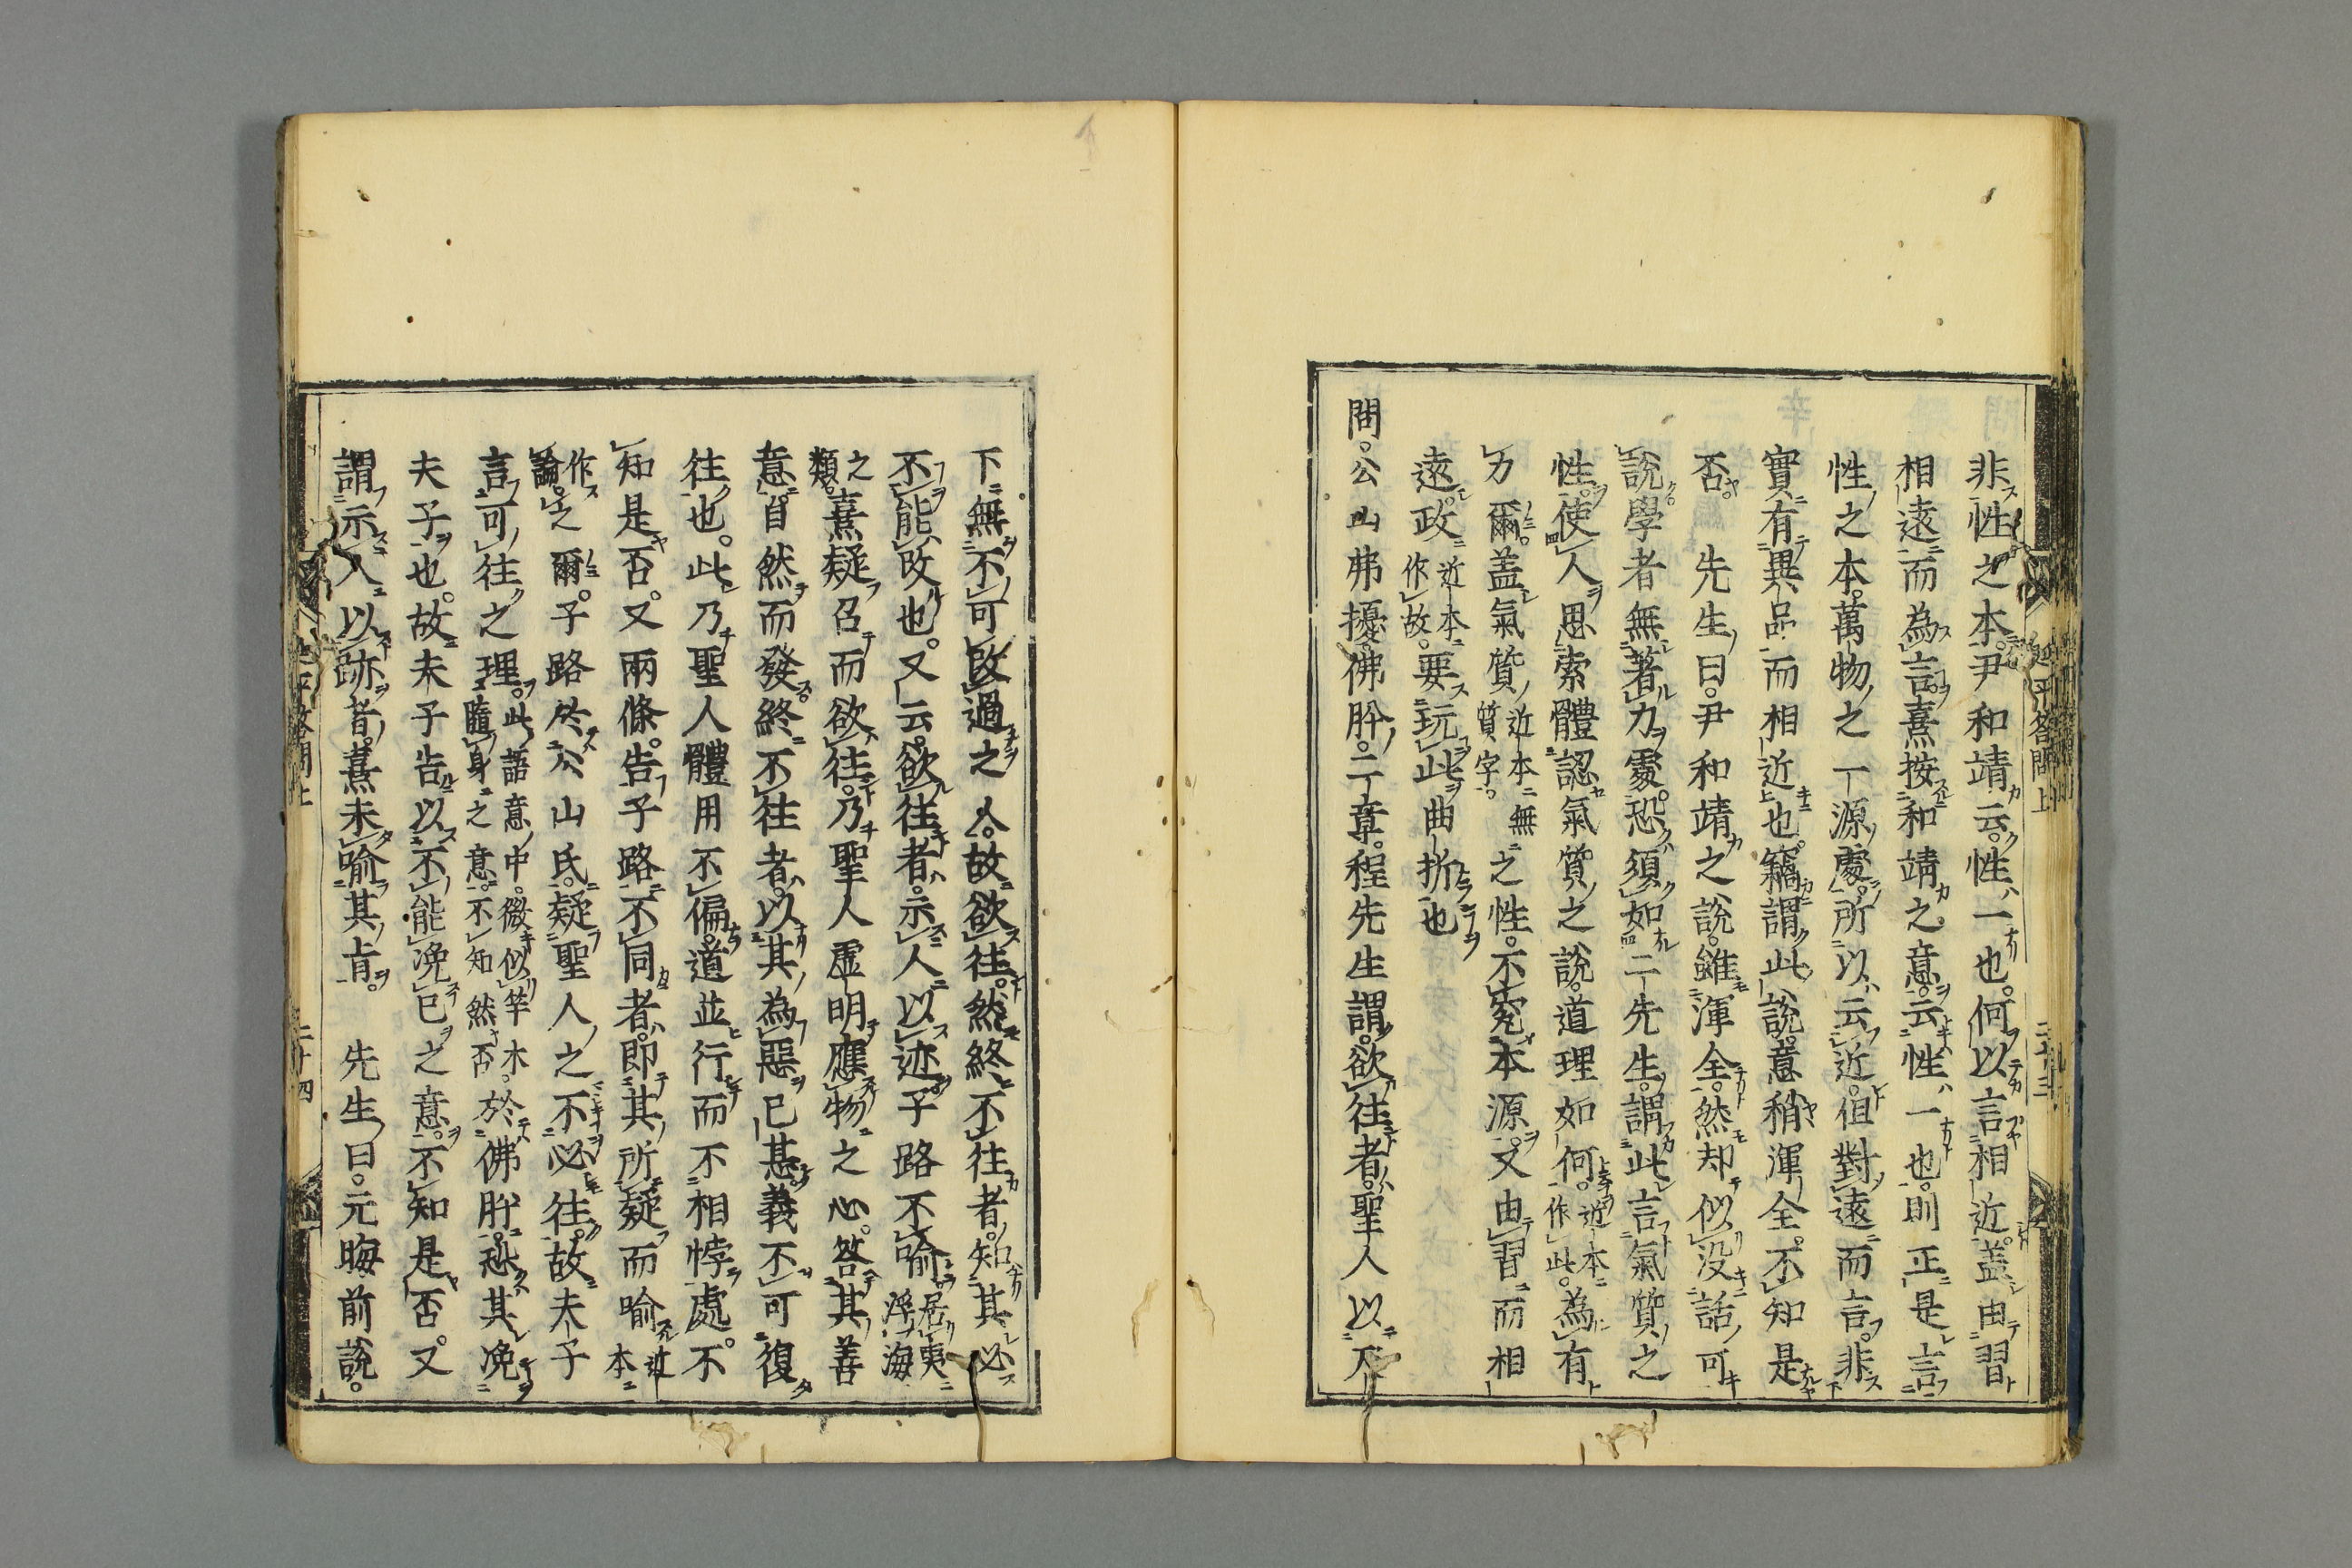 非性之本。尹和靖云。性一也。何以言相近。盖由習
相遠而為言。熹按和靖之意。云性一也。則正是言
性之本。萬物之一源處。所以云近。但對遠而言。非
實有異品而相近也。竊謂此說。意稍渾全。不知是
否。先生曰。尹和靖之說。雖渾全。然却似沒話可
說。學者無著力處。恐須如二先生。謂此言氣質之
性。使人思索體認氣質之說。道理如何。近本作此。為有
力爾。盖氣質近本無質字。之性。不究本源。又由習而相
遠。政近本作故。要玩此曲折也
問。公山弗擾佛肸。二章。程先生謂。欲往者。聖人以天
延平答問上
二十三
下無不可改過之人。故欲往。然終不往者。知其必
不能改也。又云。欲往者。示人以迹。子路不喻居夷浮海
之類。熹疑召而欲往。乃聖人虛明應物之心。答其善
意。自然而發。終不往者。以其為惡已甚。義不可復
往也。此乃聖人體用不偏。道並行而不相悖處。不
知是否。又兩條。告子路不同者。即其所疑而喻近本
作論。之爾。子路於公山氏。疑聖人之不必往。故夫子
言可往之理。此語意中。微似竿木隨身之意。不知然否。於佛肸。恐其浼
夫子也。故未子告以不能浼已之意。不知是否。又
謂示人以跡者。熹未喻其㫖。先生曰。元晦前說。
延平答問上
二十四